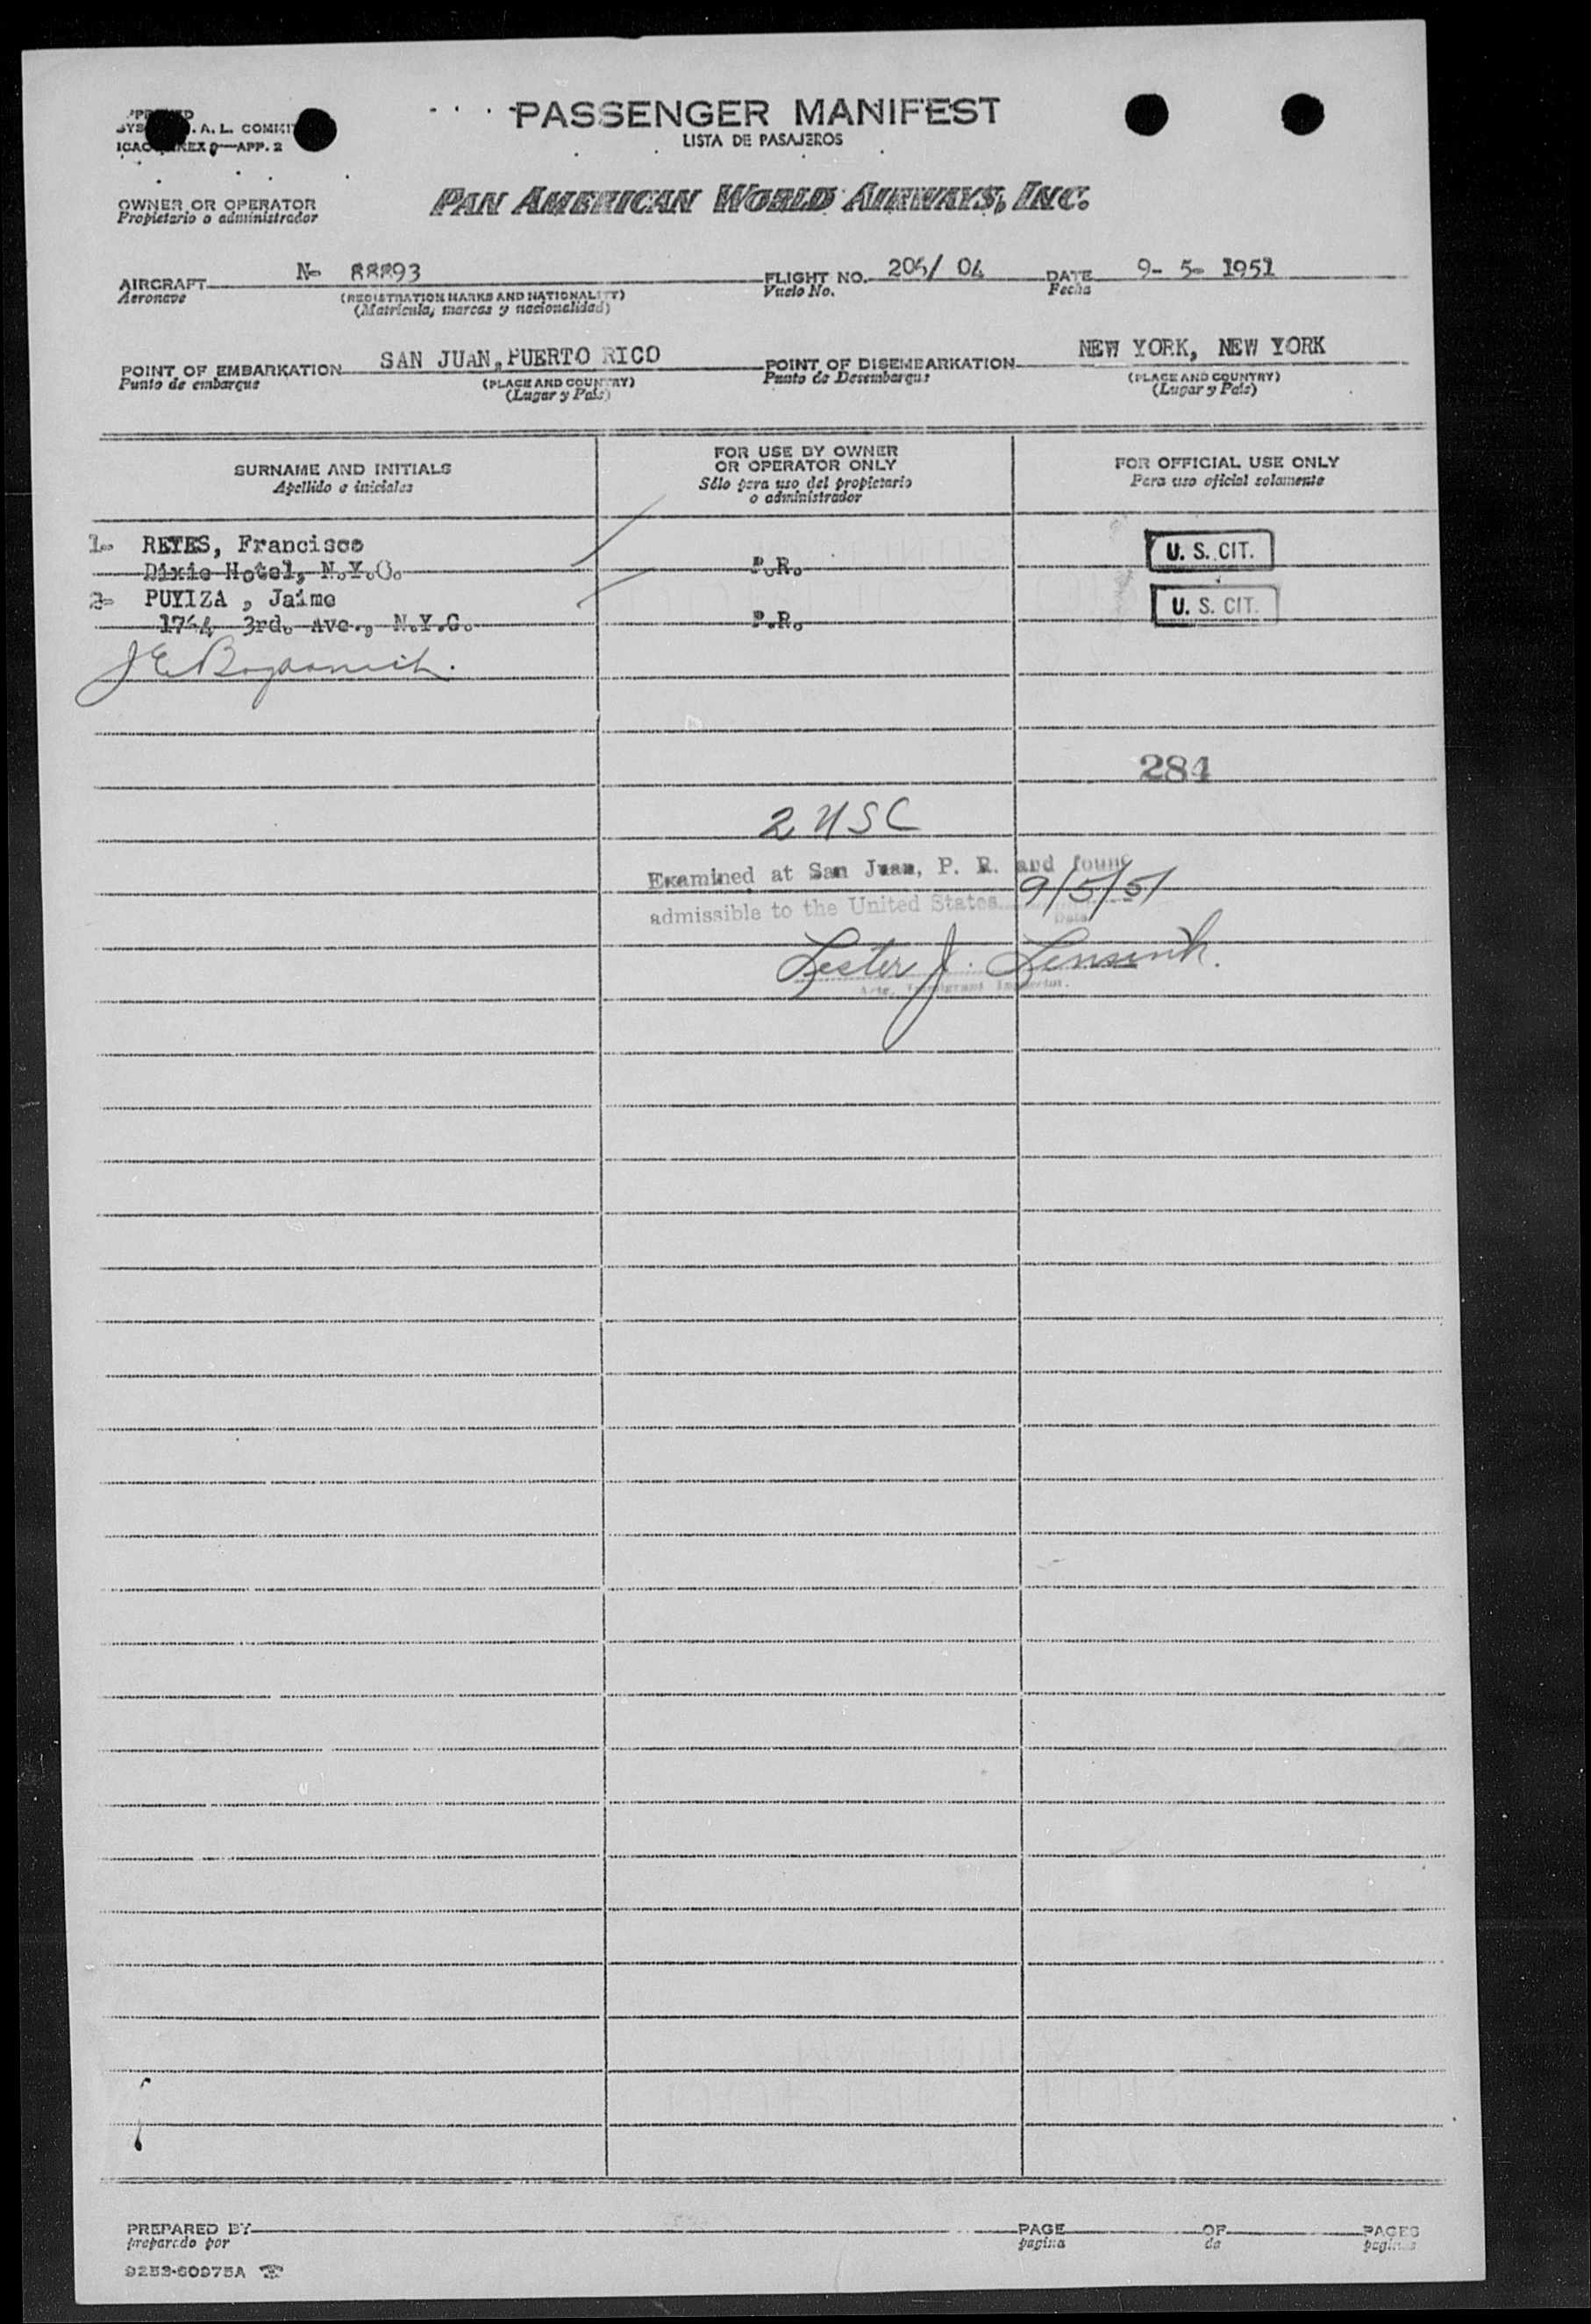 PASSENGER MANIFEST
LISTA DE PASAJEROS
. A. L. COMMIT
ICAO ANNEX 9—APP. 2
OWNER OR OPERATOR
Propietario o administrador
PAN AMERICAN WORLD AIRWAYS, INC.
AIRCRAFT N- 88893 FLIGHT NO. 206/ 04 DATE 9- 5- 1951
Aeronave (REGISTRATION MARKS AND NATIONALITY) Vuelo No. Fecha
(Matrícula, marcas y nacionalidad)
POINT OF EMBARKATION SAN JUAN, PUERTO RICO POINT OF DISEMBARKATION NEW YORK, NEW YORK
Punto de embarque (PLACE AND COUNTRY) Punto de Desembarque (PLACE AND COUNTRY)
(Lugar y País) (Lugar y País)
SURNAME AND INITIALS
Apellido e iniciales
FOR USE BY OWNER
OR OPERATOR ONLY
Sólo para uso del propietario
o administrador
FOR OFFICIAL USE ONLY
Para uso oficial solamente
1- REYES, Francisco U. S. CIT.
Dixie Hotel, N.Y.C. P.R.
2- PUYIZA , Jaime U. S. CIT.
3rd. Ave., N.Y.C. P.R.
284
2 USC
Examined at San Juan, P. R. and found
admissible to the United States 9/5/51
Date
Lester J. Lensink.
Actg. Immigrant Inspector.
PREPARED BY PAGE OF PAGES
preparado por pagina de paginas
9253-60975A